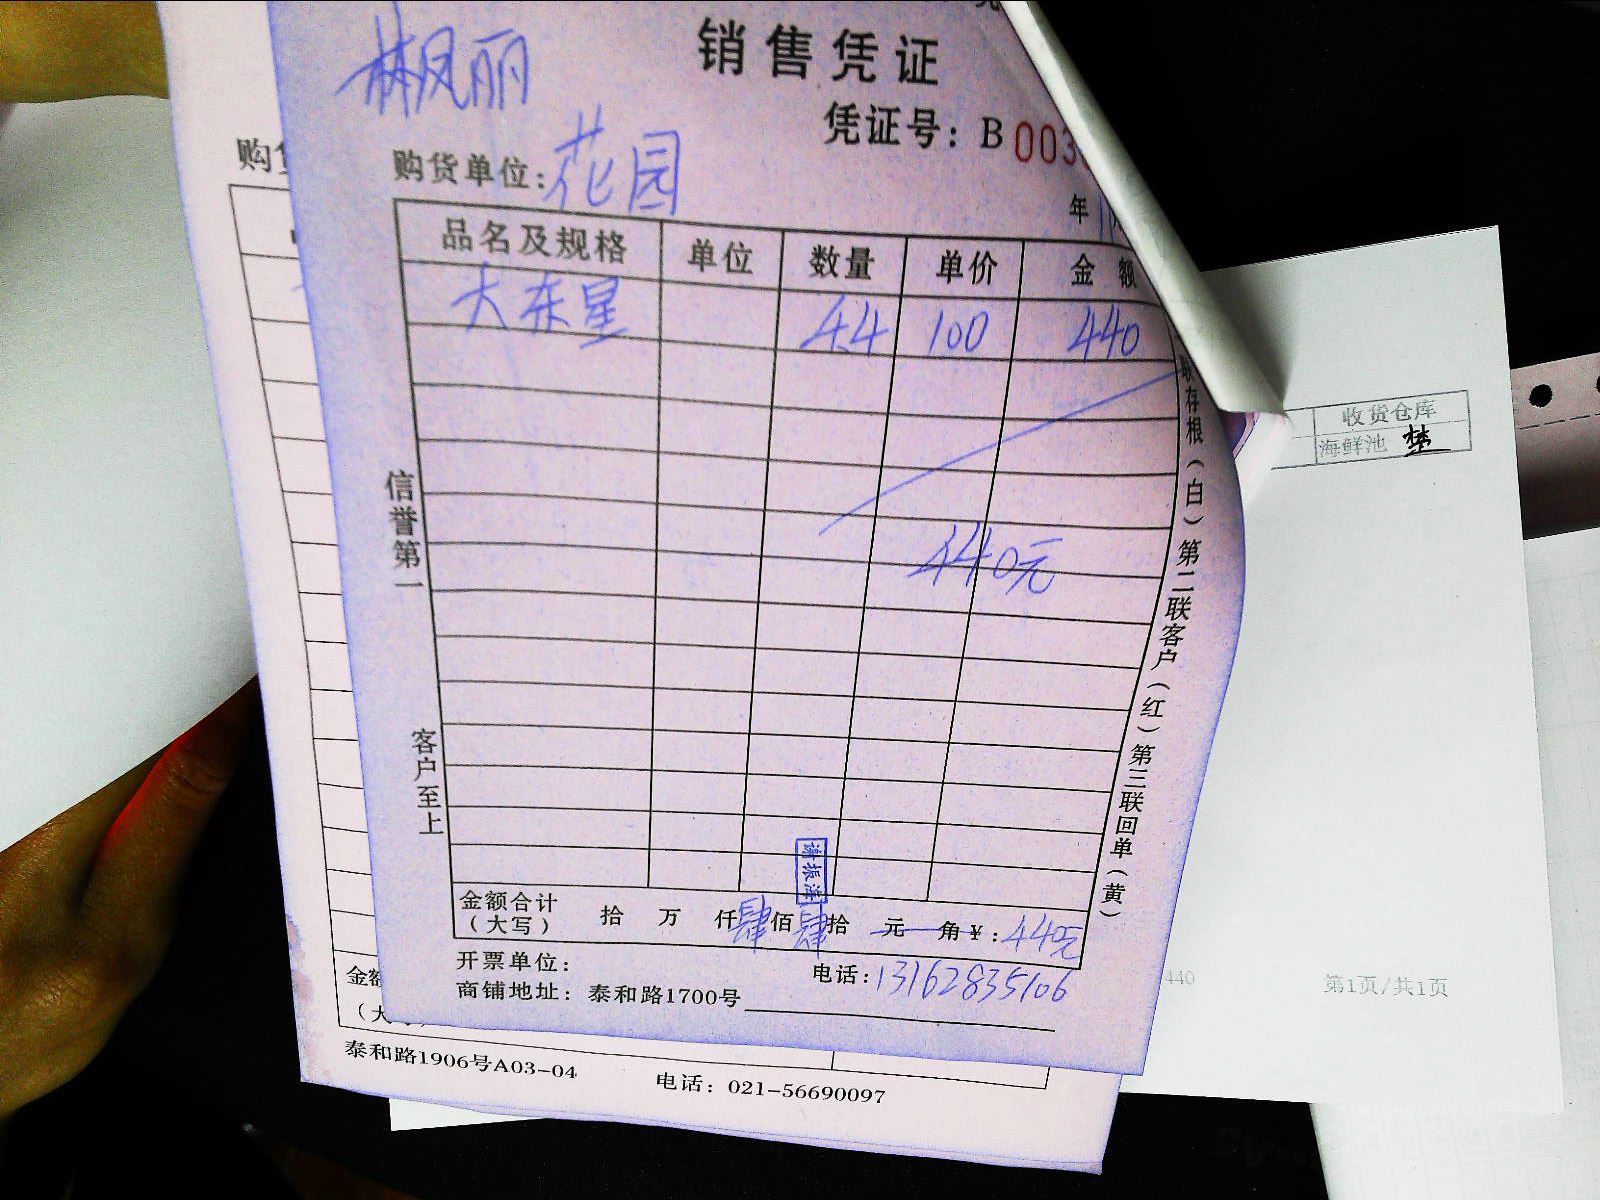 销售凭证
凤丽
凭证号：B 003
购货单位：花园
年
品名及规格 单位 数量 单价 金额
大东星 4.4 100 440
440元
信誉第一
客户至上
存根（白）第二联客户（红）第三联回单（黄）
金额合计（大写） 拾 万 仟 肆 佰 肆 拾 元 角 ¥：440元
开票单位：
电话：13162835106
商铺地址：泰和路1700号
购
金额
（大
泰和路1906号A03-04 电话：021-56690097
收货仓库
海鲜池
440 第1页/共1页